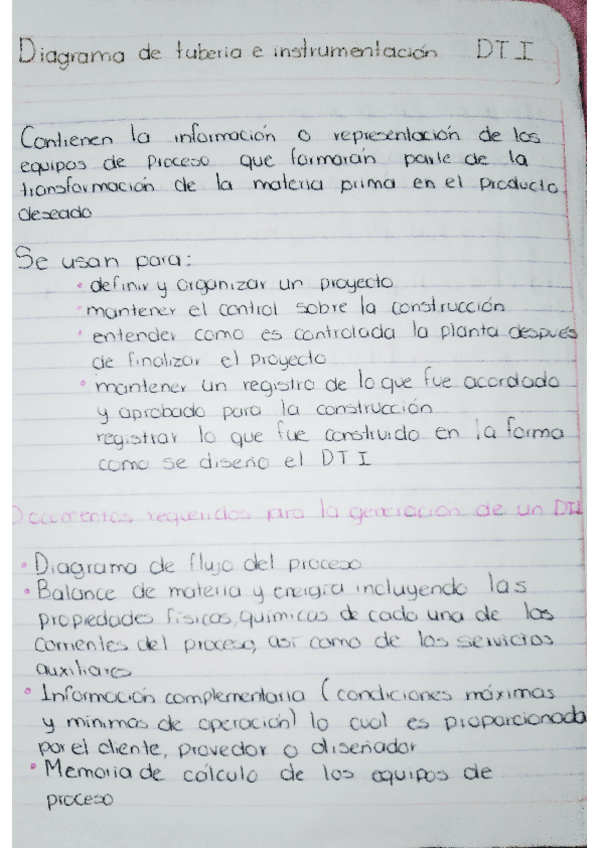 Diagrama de tuberia e instrumentación DTI
Contienen la información o representación de los
equipos de proceso que formarán parte de la
transformación de la materia prima en el producto
deseado
Se usan para:
• definir y organizar un proyecto
• mantener el control sobre la construcción
• entender como es controlada la planta después
de finalizar el proyecto
• mantener un registro de lo que fue acordado
y aprobado para la construcción
registrar lo que fue construido en la forma
como se diseño el DTI
Documentos requeridos para la generación de un DTI
• Diagrama de flujo del proceso
• Balance de materia y energía incluyendo las
propiedades físicas, químicas de cada una de las
corrientes del proceso, así como de los servicios
auxiliares
• Información complementaria (condiciones máximas
y mínimas de operación) lo cual es proporcionada
por el cliente, provedor o diseñador
• Memoria de cálculo de los equipos de
proceso